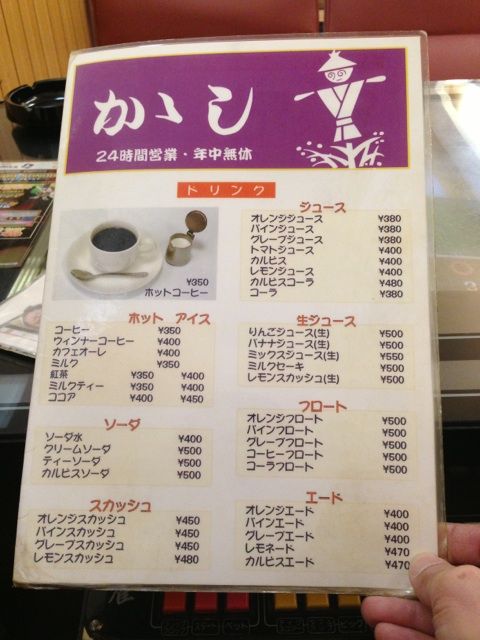 かゝし
24時間営業・年中無休
ドリンク
¥350
ホットコーヒー
ホット アイス
コーヒー ¥350
ウィンナーコーヒー ¥400
カフェオーレ ¥400
ミルク ¥350
紅茶 ¥350 ¥400
ミルクティー ¥350 ¥400
ココア ¥400 ¥450
ソーダ
ソーダ水 ¥400
クリームソーダ ¥500
ティーソーダ ¥500
カルピスソーダ ¥500
スカッシュ
オレンジスカッシュ ¥450
パインスカッシュ ¥450
グレープスカッシュ ¥450
レモンスカッシュ ¥480
ジュース
オレンジジュース ¥380
パインジュース ¥380
グレープジュース ¥380
トマトジュース ¥400
カルピス ¥400
レモンジュース ¥400
カルピスコーラ ¥480
コーラ ¥380
生ジュース
りんごジュース(生) ¥500
バナナジュース(生) ¥500
ミックスジュース(生) ¥550
ミルクセーキ ¥500
レモンスカッシュ(生) ¥500
フロート
オレンジフロート ¥500
パインフロート ¥500
グレープフロート ¥500
コーヒーフロート ¥500
コーラフロート ¥500
エード
オレンジエード ¥400
パインエード ¥400
グレープエード ¥400
レモネード ¥470
カルピスエード ¥470